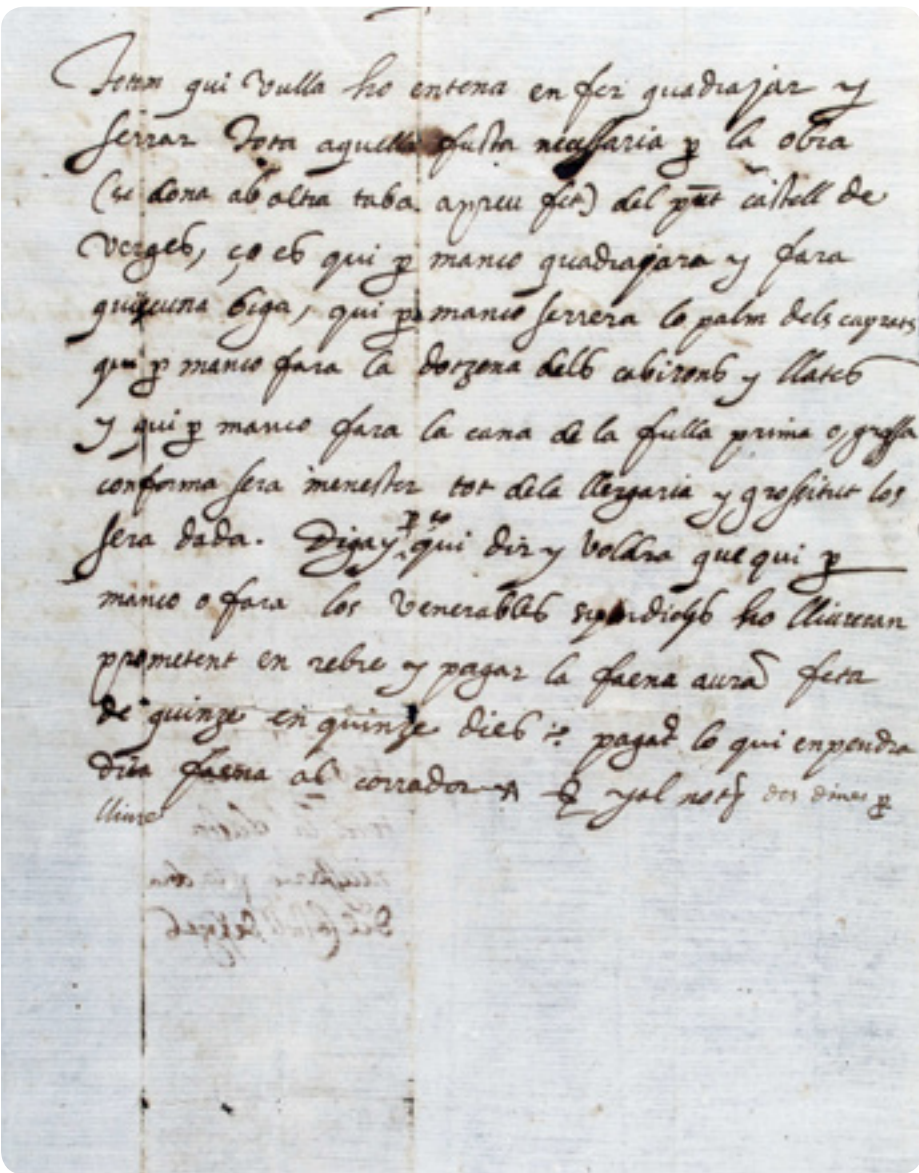 Totom qui vulla ho entena en fer quadrajar y
serrar tota aquella fusta necessaria p la obra
(se dona ab altra taba a preu fet) del pnt castell de
Verges, ço es qui p manco quadrajara y fara
quiscuna biga, qui p manco serrera lo palm dels
qui p manco fara la dotzena dels cabirons y llates
y qui p manco fara la cana de la fulla prima o, grossa
conforma sera menester tot de la llergaria y grossitut los
sera dada. Diga y qui dir y voldra que qui p
manco o fara los venerables syndichs ho lliureran
prometent en rebre y pagar la faena aura feta
de quinze en quinze dies pagat lo qui enpendra
dita faena al corrador y al not dos dines p
lliura